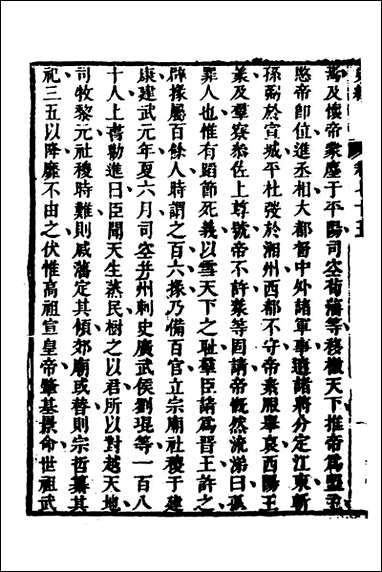 卷七十五
焉及懷帝蒙塵于平陽司空荀藩等移檄天下推帝爲盟主
愍帝即位進丞相大都督中外諸軍事遣諸將分定江東斬
孫弼於宣城平杜弢於湘州西都不守帝素服舉哀西陽王
羕及羣寮叅佐上尊號帝不許羕等固請帝慨然流涕曰孤
罪人也惟有蹈節死義以雪天下之耻羣臣請爲晋王許之
辟掾屬百餘人時謂之百六掾乃備百官立宗廟社稷于建
康建武元年夏六月司空并州刺史廣武侯劉琨等一百八
十人上書勸進曰臣聞天生蒸民樹之以君所以對越天地
司牧黎元社稷時難則戚藩定其傾郊廟或替則宗哲纂其
祀三五以降靡不由之伏惟高祖宣皇帝肇基景命世祖武